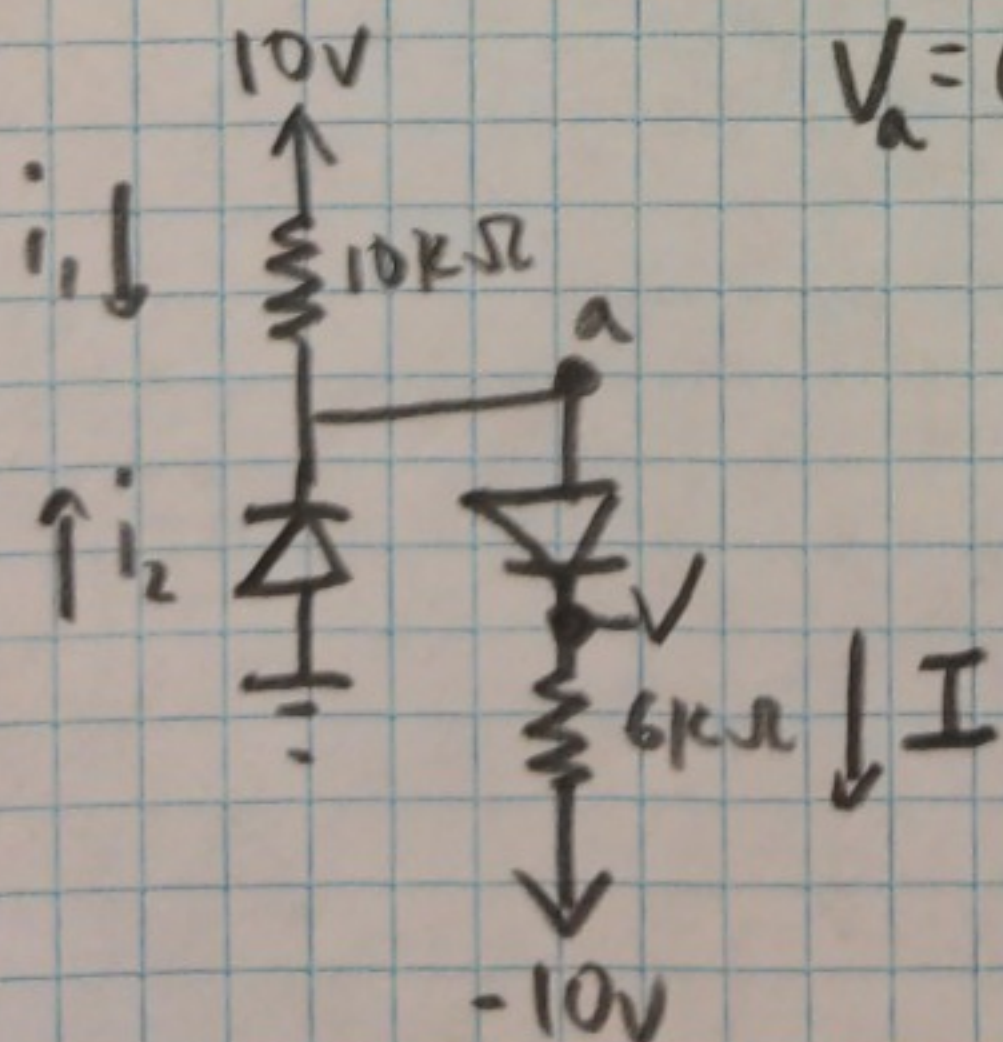 10V
Va =
i1
10kΩ
a
i2
V
6kΩ
I
-10V